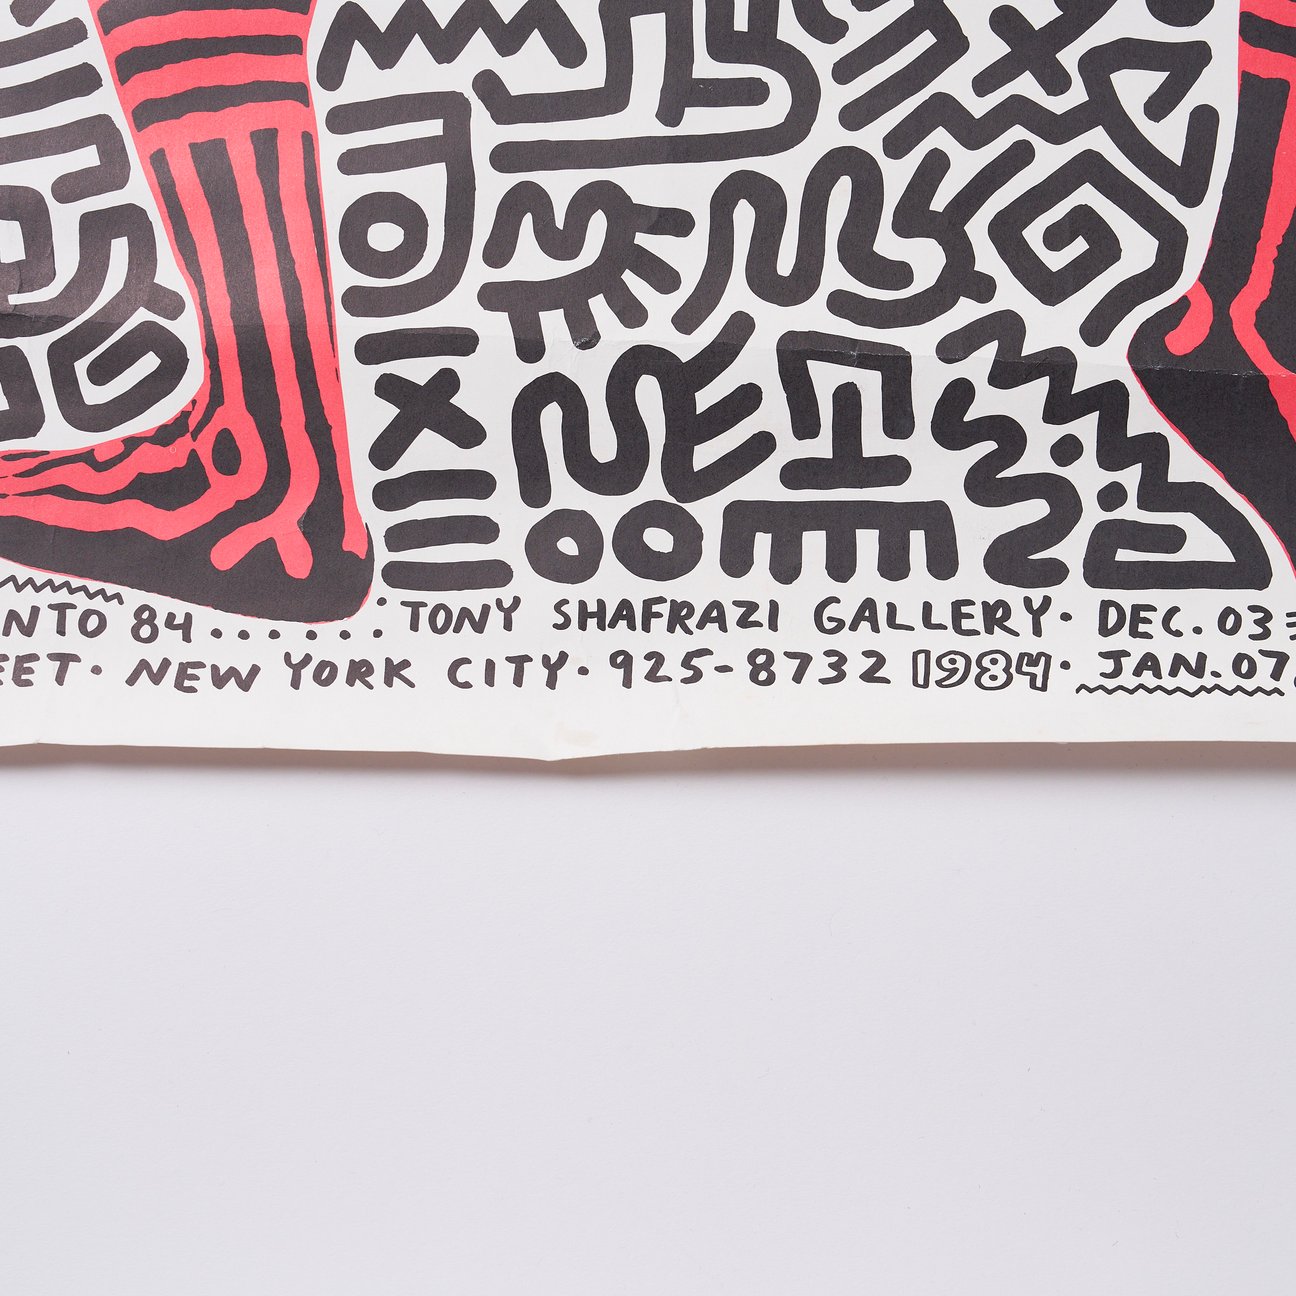 NTO 84 . . . . . . . TONY SHAFRAZI GALLERY · DEC. 03
EET · NEW YORK CITY · 925-8732 1984 · JAN. 07